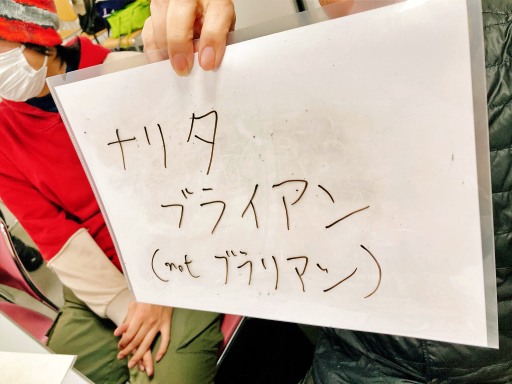 ナリタ
ブライアン
(not ブラリアン)